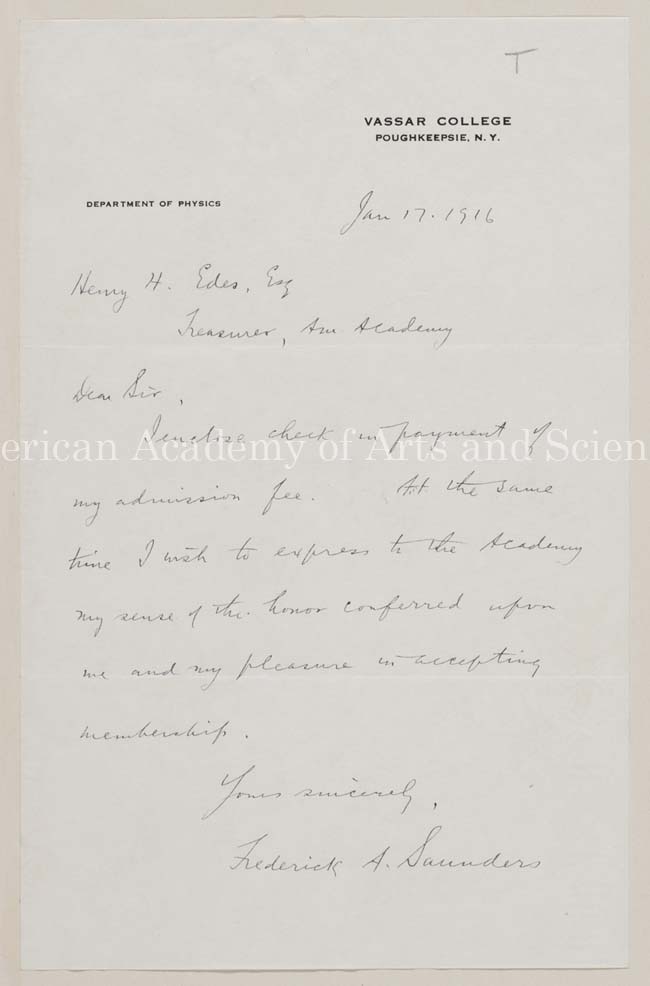 T
VASSAR COLLEGE
POUGHKEEPSIE, N. Y.
DEPARTMENT OF PHYSICS
Jan 17. 1916
Henry H. Edes, Esq
Treasurer, Am Academy
Dear Sir,
I enclose check in payment of
erican Academy of Arts and Scien
my admission fee. At the same
time I wish to express to the Academy
my sense of the honor conferred upon
me and my pleasure in accepting
membership.
Yours sincerely,
Frederick A. Saunders